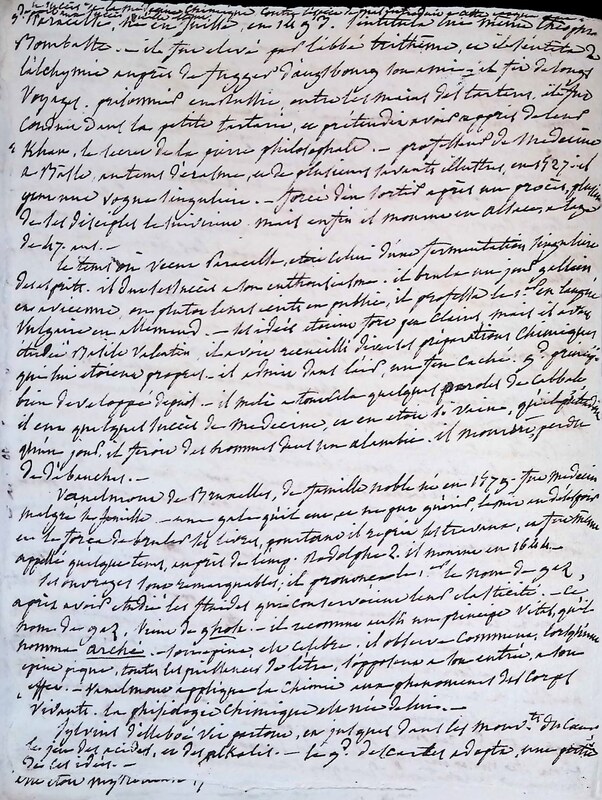 Paracelse, né en Suisse, en 1493. s'intitula lui même
Bombaste. - il fut elevé par l'abbé trithème, et
l'alchymie auprès de fugger d'augsbourg son ami - il fit de longs
voyages. prisonnier en Russie, entre les mains des tartares, il fut
conduit dans la petite tartarie, et prétendit avoir appris de leur
Khan, le secret de la pierre philosophale. - professeur de Médecine
a Basle, au tems d'érasme, et de plusieurs savants illustres, en 1527 - il
une vogue singulière. - forcé d'en sortir après un procès, plusieurs
de ses disciples le suivirent. mais enfin il mourut en alsace, a l'age
de 47 ans. -
le tems où vécut Paracelse, etait celui d'une fermentation singulière
des esprits. il dut ses succès a son enthousiasme. il brula un jour gallien
et avicenne, ou plutot leurs écrits en public, il professa le 1er. en langue
vulgaire en allemand. - ses idées etaient fort peu claires, mais il avait
étudié Basile Valentin, il avoit recueilli diverses préparations chimiques
qui lui étoient propres - il admit dans l'air, un feu caché
bien développé depuis - il mela a tout cela quelques paroles de cabbale
il eut quelques succès de médecine, et en etait si vain, qu'il prétendit
qu'un jour, il feroit des hommes dans un alambic. il mourut, perdu
de débauches. -
Vanelmont de Bruxelles, de famille noble né en 1577 - fut médecin
malgré sa famille. - une gale qu'il eut, et ne put guérir, le mit en désespoir
et le força de bruler ses livres, pourtant il reprit ses travaux, et fut même
appellé quelque tems, auprès de l'emp. Rodolphe 2. il mourut en 1644 -
ses ouvrages sont remarquables, il prononça le 1er. le nom de gaz,
après avoir étudié les fluides qui conservaient leur elasticité. - ce
nom de gaz, vient de ghost - il reconnut aussi un principe vital, qu'il
nomma arché. - célèbre, il observe comment, lorsqu'une
épine pique, toutes les puissances de l'être, s'opposent a son entrée, a son
effet. - Vanelmont applique la chimie aux phénomènes des corps
vivants. la phisiologie chimique est née de lui. -
Sylvius Delleboë vit partout, et jusques dans les mouvts. du coeur
le jeu des acides, et des alkalis. - le gd. descartes adopta, une partie
de ces idées. -